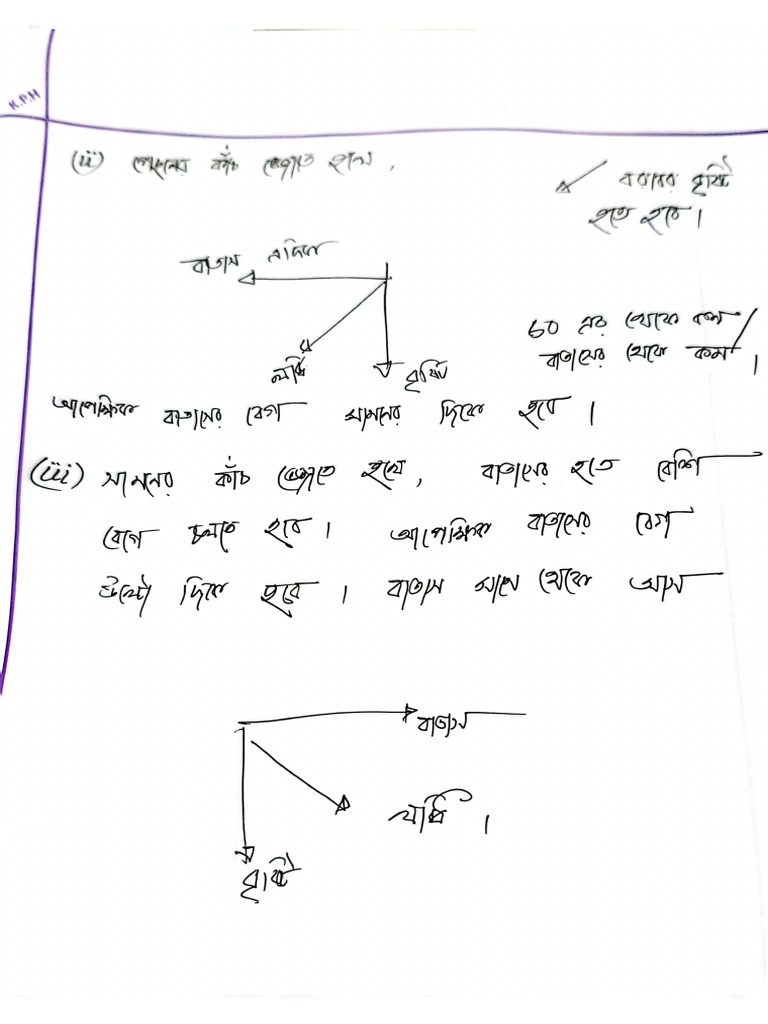 K.P.H
(ii) পেছনের কাঁচ ভেজাতে হলে,
বরাবর বৃষ্টি
হতে হবে।
বাতাস এদিকে
লব্ধি
বৃষ্টি
৮০ এর থেকে কম /
বাতাসের থেকে কম।
আপেক্ষিক বাতাসের বেগ সামনের দিকে হবে।
(iii) সামনের কাঁচ ভেজাতে হলে, বাতাসের হতে বেশি
বেগে চলতে হবে। আপেক্ষিক বাতাসের বেগ
উল্টো দিকে হবে। বাতাস থেকে আস
বাতাস
লব্ধি।
বৃষ্টি